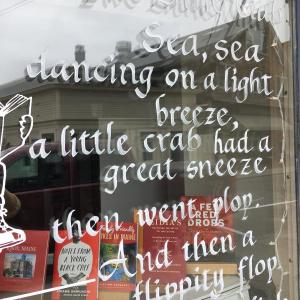 Sea, sea
dancing on a light
breeze,
a little crab had a
great sneeze
then went plop.
And then a
flippity flop
MAINE
NOTES FROM
A YOUNG
BLACK CHEF
IN MAINE
A FEW
RED
DROPS